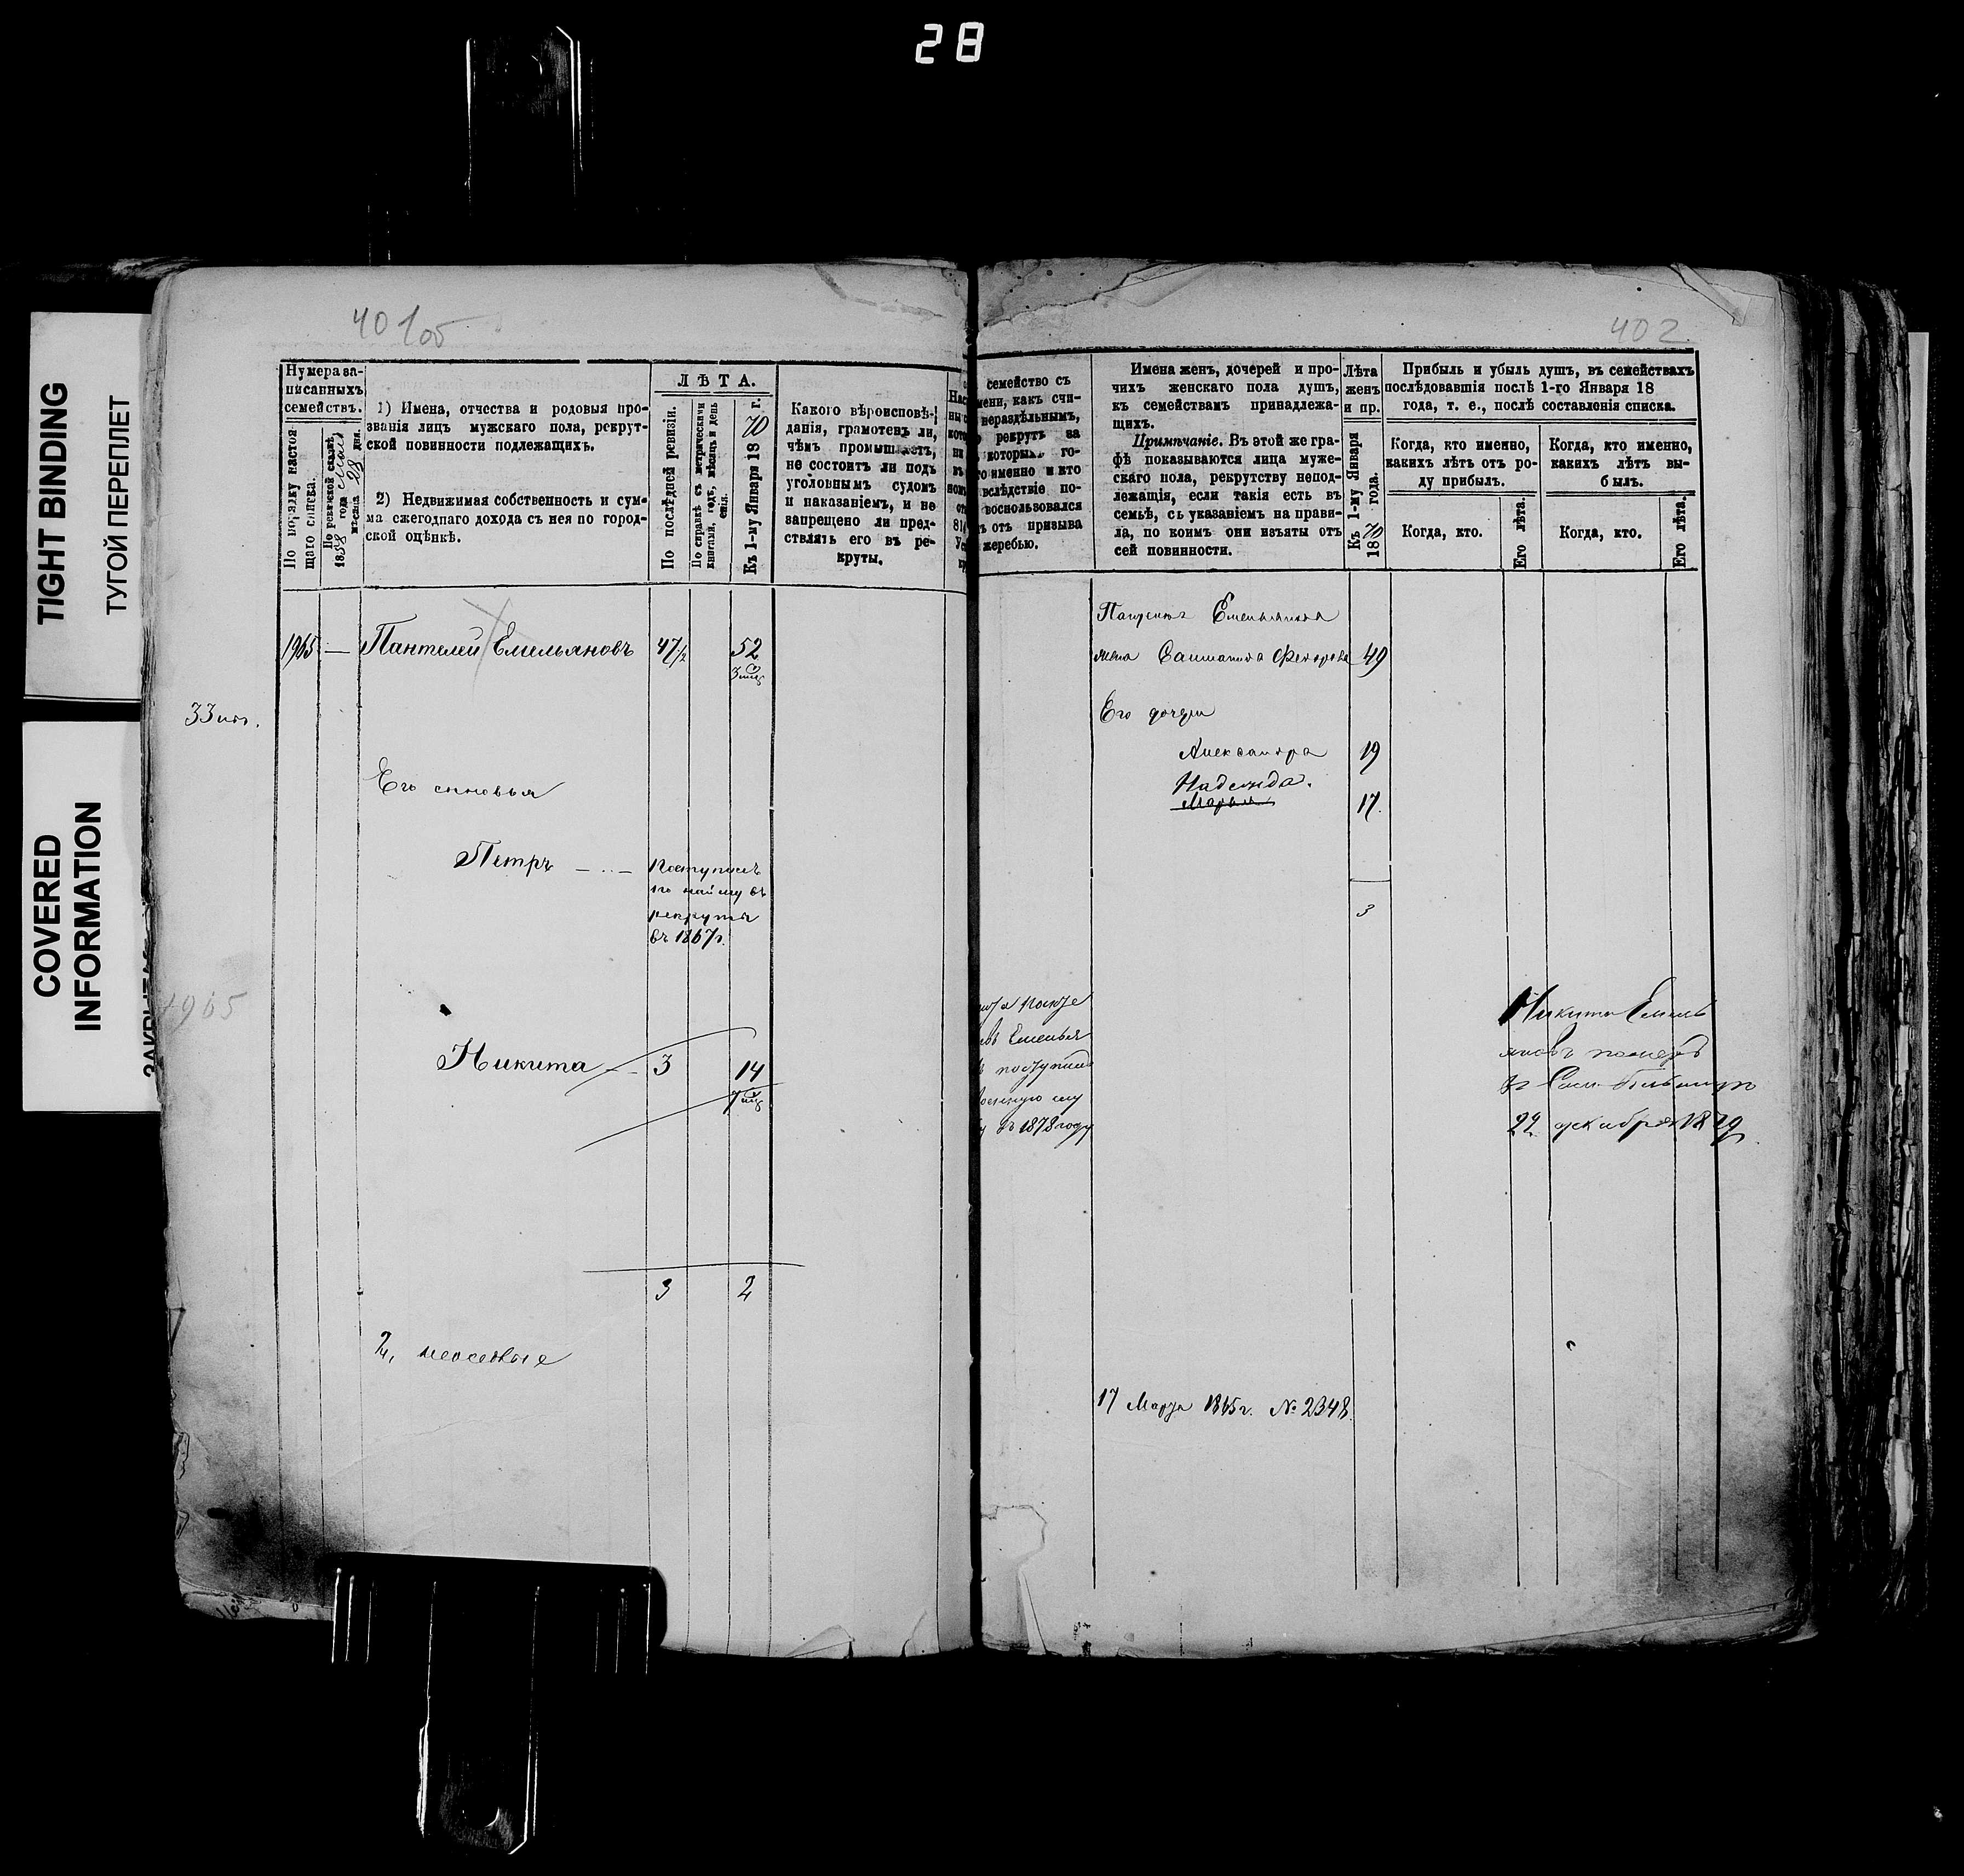 28
TIGHT BINDING
ТУГОЙ ПЕРЕПЛЕТ
COVERED
INFORMATION
401об
Нумера за-
писанныхъ
семействъ.
По порядку настоя-
щаго списка.
По ревизской сказкѣ
1858 года
мѣсяца 28 дня.
1) Имена, отчества и родовыя про-
званія лицъ мужскаго пола, рекрут-
ской повинности подлежащихъ.
2) Недвижимая собственность и сум-
ма ежегоднаго дохода съ нея по город-
ской оцѣнкѣ.
ЛѢТА.
По послѣдней ревизіи.
По справкѣ съ метрическими
книгами, годъ, мѣсяцъ и день
Къ 1-му Января 1870 г.
Какого вѣроисповѣ-
данія, грамотенъ ли,
чѣмъ промышляетъ,
не состоитъ ли подъ
уголовнымъ судомъ
и наказаніемъ, и не
запрещено ли пред-
ставлять его въ ре-
круты.
1965 — Пантелей Емельяновъ 47½ 52
33
Его сыновья
Петръ — поступилъ
по найму въ
рекруты
въ 1867г.
1965
Никита 3 14
3 2
2,
402
семейство съ
мени, какъ счи-
нераздѣльнымъ,
рекрутъ за
которыхъ го-
именно и кто
вслѣдствіе по-
воспользовался
отъ призыва
жеребью.
Имена женъ, дочерей и про-
чихъ женскаго пола душъ,
къ семействамъ принадлежа-
щихъ.
Примѣчаніе. Въ этой же гра-
фѣ показываются лица муже-
скаго пола, рекрутству непод-
лежащія, если такія есть въ
семьѣ, съ указаніемъ на прави-
ла, по коимъ они изъяты отъ
сей повинности.
Лѣта
женъ
и пр.
Къ 1-му Января
1870 года.
Прибыль и убыль душъ, въ семействахъ
послѣдовавшія послѣ 1-го Января 18
года, т. е., послѣ составленія списка.
Когда, кто именно,
какихъ лѣтъ отъ ро-
ду прибылъ.
Когда, кто.
Его лѣта.
Когда, кто именно,
какихъ лѣтъ вы-
былъ.
Когда, кто.
Его лѣта.
Емельянова
жена Федорова 49
Его дочери
Александра 19
Надежда.
Марья 17.
3
поступилъ
въ 1878 году
Никита Емель
яновъ померъ
22 декабря 1879
17 Марта 1865г. № 2348.